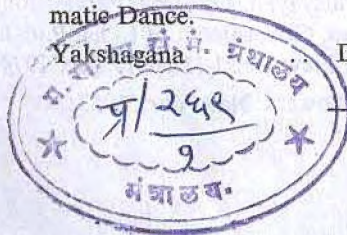 matic Dance.
Yakshagana .. D
म. रा. सां. मं. ग्रंथालय
प्र/२६९
१
मंत्रालय.